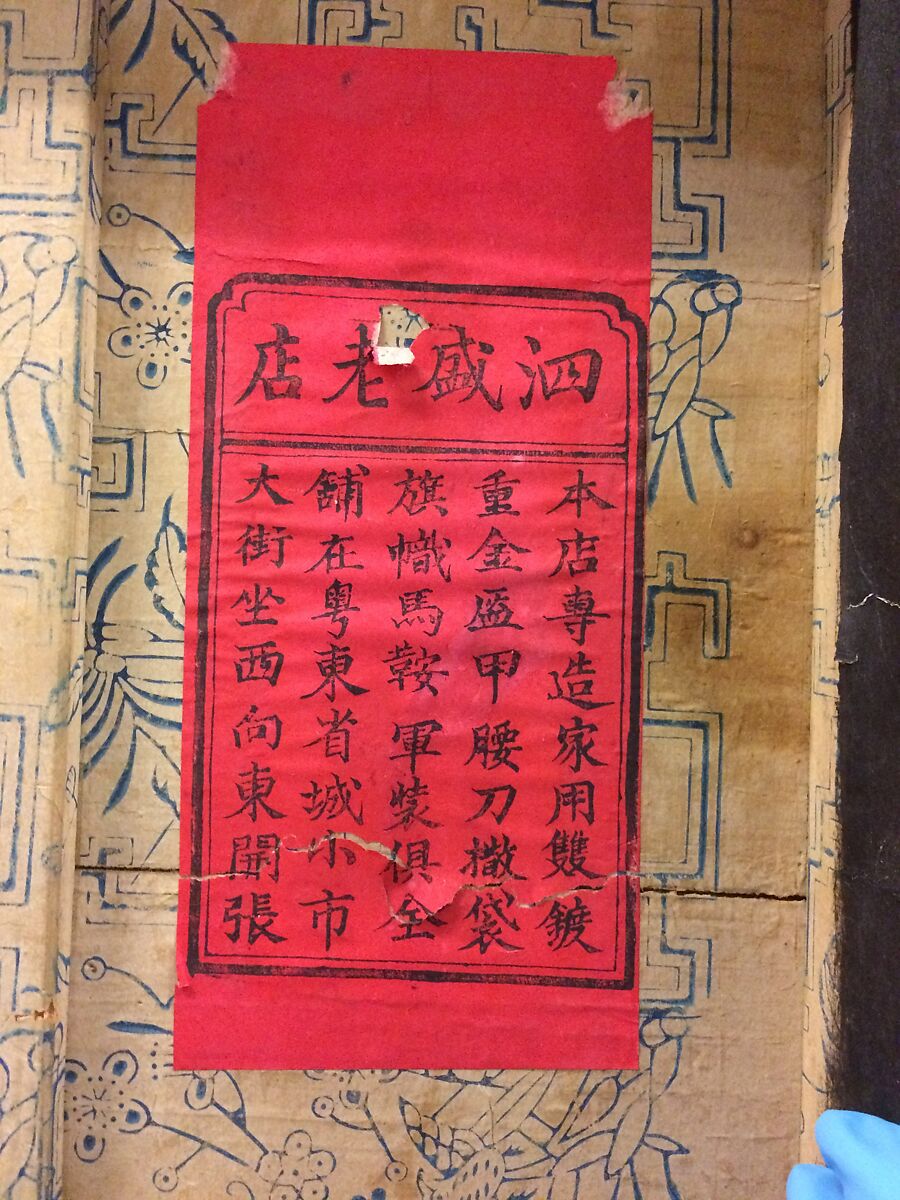 泗盛老店
本店專造家用雙鍍
重金盔甲腰刀撒袋
旗幟馬鞍軍裝俱全
舖在粵東省城小市
大街坐西向東開張